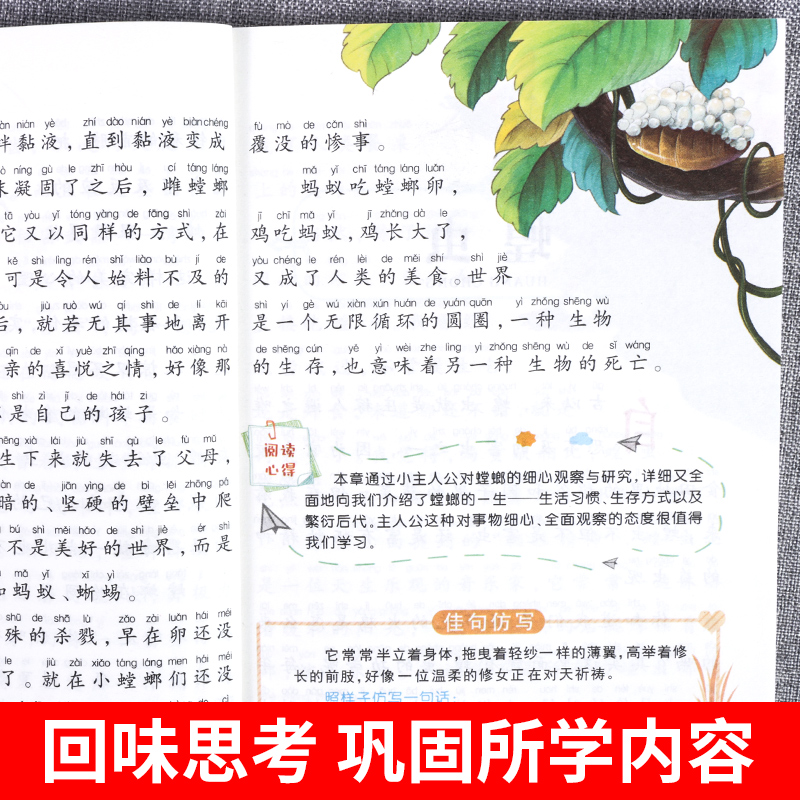 nián yè zhí dào nián yè biàn chéng
半黏液,直到黏液变成
níng gù le zhī hòu cí táng láng
凝固了之后,雌螳螂
tā yòu yǐ tóng yàng de fāng shì zài
它又以同样的方式,在
kě shì lìng rén shǐ liào bù jí de
可是令人始料不及的
jiù ruò wú qí shì de lí kāi
后,就若无其事地离开
qīn de xǐ yuè zhī qíng hǎo xiàng nà
亲的喜悦之情,好像那
shì zì jǐ de hái zi
是自己的孩子。
shēng xià lái jiù shī qù le fù mǔ
生下来就失去了父母,
de jiān yìng de bì lěi zhōng pá
暗的、坚硬的壁垒中爬
bú shì měi hǎo de shì jiè ér shì
不是美好的世界,而是
mǎ yǐ xī yì
如蚂蚁、蜥蜴。
shū de shā lù zǎo zài luǎn hái méi
殊的杀戮,早在卵还没
le jiù zài xiǎo táng láng men hái méi
了。就在小螳螂们还没
fù mò de cǎn shì
覆没的惨事。
mǎ yǐ chī táng láng luǎn
蚂蚁吃螳螂卵,
jī chī mǎ yǐ jī zhǎng dà le
鸡吃蚂蚁,鸡长大了,
yòu chéng le rén lèi de měi shí shì jiè
又成了人类的美食。世界
shì yí gè wú xiàn xún huán de yuán quān yì zhǒng shēng wù
是一个无限循环的圆圈,一种 生物
de shēng cún yě yì wèi zhe lìng yì zhǒng shēng wù de sǐ wáng
的生存,也意味着另一种 生物的死亡。
阅读
心得
本章通过小主人公对螳螂的细心观察与研究,详细又全
面地向我们介绍了螳螂的一生——生活习惯、生存方式以及
繁衍后代。主人公这种对事物细心、全面观察的态度很值得
我们学习。
佳句仿写
它常常半立着身体,拖曳着轻纱一样的薄翼,高举着修
长的前肢,好像一位温柔的修女正在对天祈祷。
照样子仿写一句话:
回味思考 巩固所学内容